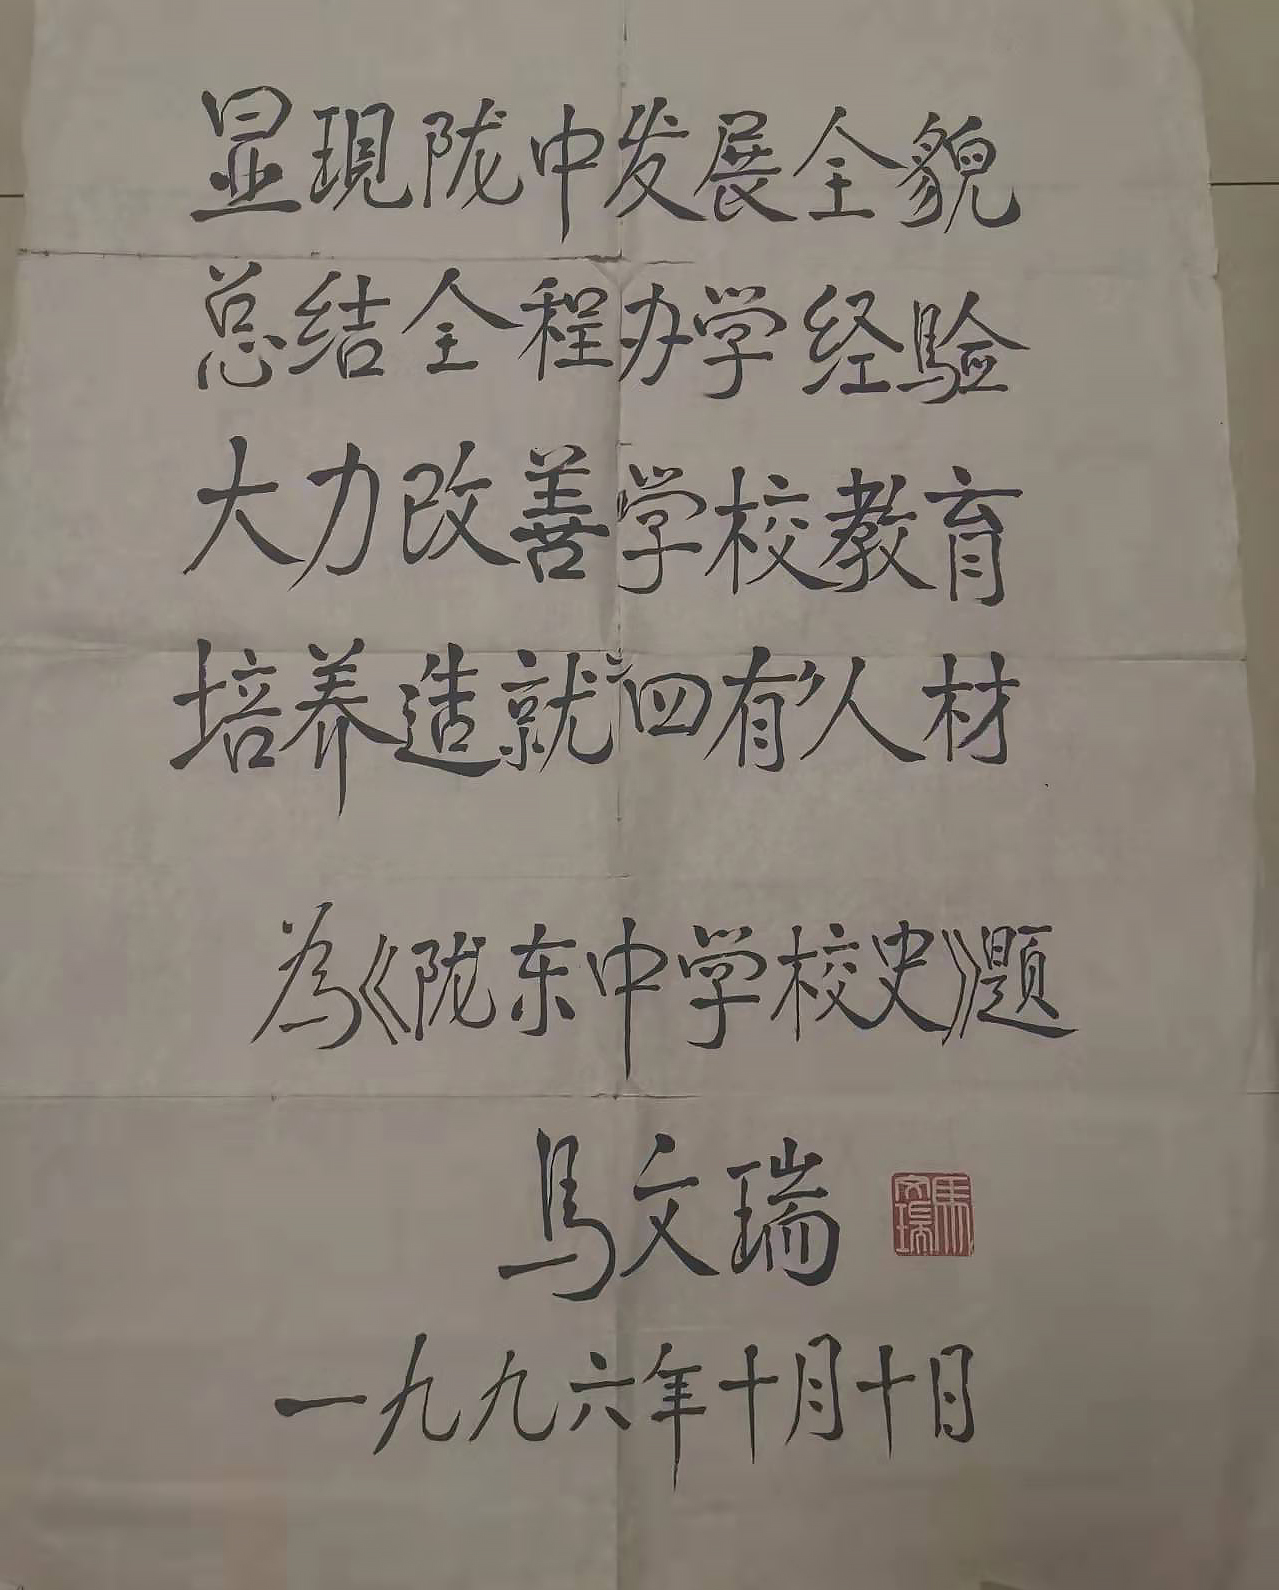 显現陇中发展全貌
总结全程办学经验
大力改善学校教育
培养造就“四有”人材
為《陇东中学校史》题
馬文瑞
馬文瑞
一九九六年十月十日